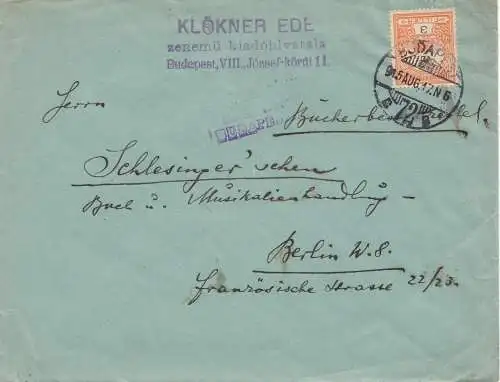 KLÖKNER EDE
zenemű kiadóhivatala
Budapest, VIII., József-körút 11
915 AUG. 17. N 6
72
Herrn Bücherbestellzettel
Schlesinger'schen
Buch u. Musikalienhandlung
Berlin W. 8.
Französische Strasse 22/23.